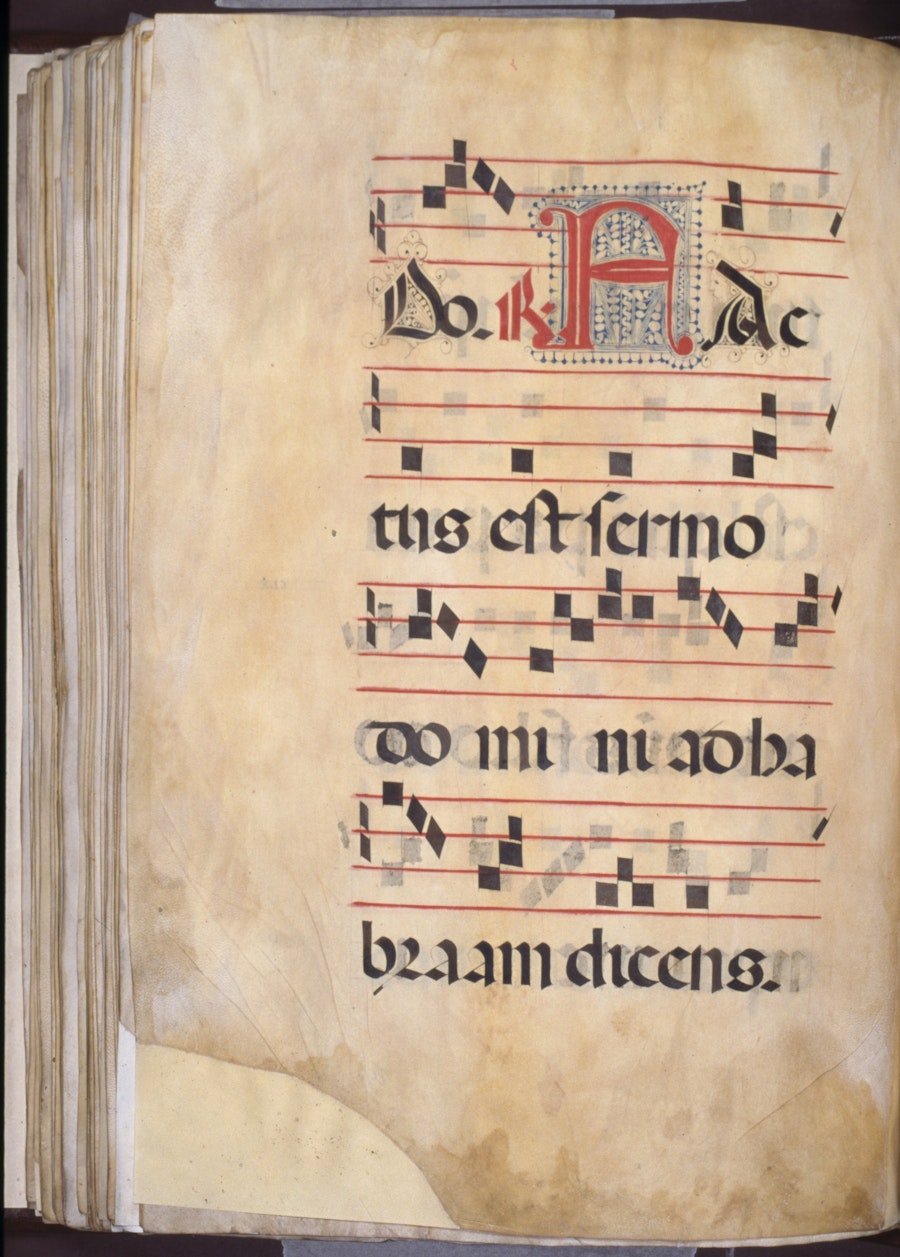 Do. ℟. FAc
tus est sermo
do mi ni ad ha
braam dicens.